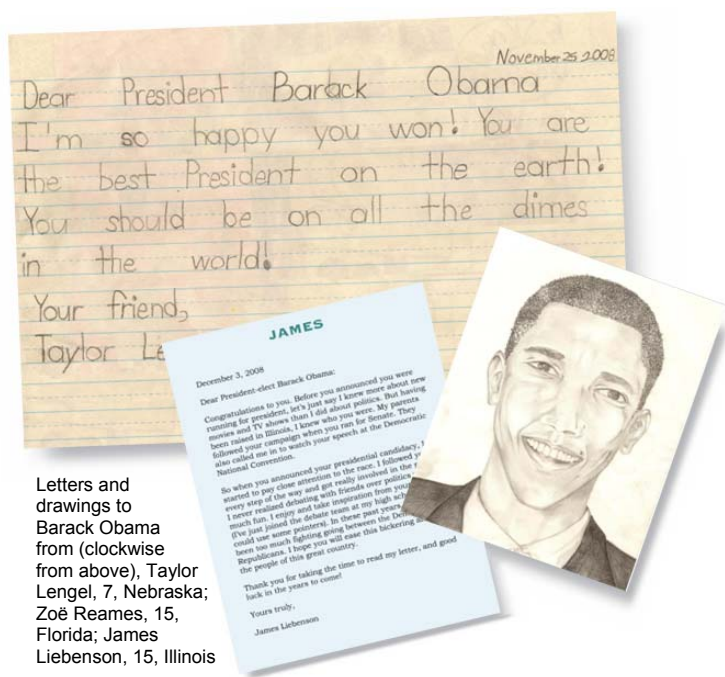 November 25 2008
Dear President Barack Obama
I'm so happy you won! You are
the best President on the earth!
You should be on all the dimes
in the world!
Your friend,
Taylor
JAMES
December 3, 2008
Dear President-elect Barack Obama:
Congratulations to you. Before you announced you were
running for president, let's just say I knew more about new
movies and TV shows than I did about politics. But having
been raised in Illinois, I knew who you were. My parents
followed your campaign when you ran for Senate. They
also called me in to watch your speech at the Democratic
National Convention.
So when you announced your presidential candidacy, I
started to pay close attention to the race. I followed
every step of the way and got really involved in the
I never realized debating with friends over politics
much fun. I enjoy and take inspiration from
(I've just joined the debate team at my high
could use some pointers). In these past years,
been too much fighting going between the
Republicans. I hope you will ease this bickering
the people of this great country.
Thank you for taking the time to read my letter, and good
luck in the years to come!
Yours truly,
James Liebenson
Letters and
drawings to
Barack Obama
from (clockwise
from above), Taylor
Lengel, 7, Nebraska;
Zoë Reames, 15,
Florida; James
Liebenson, 15, Illinois